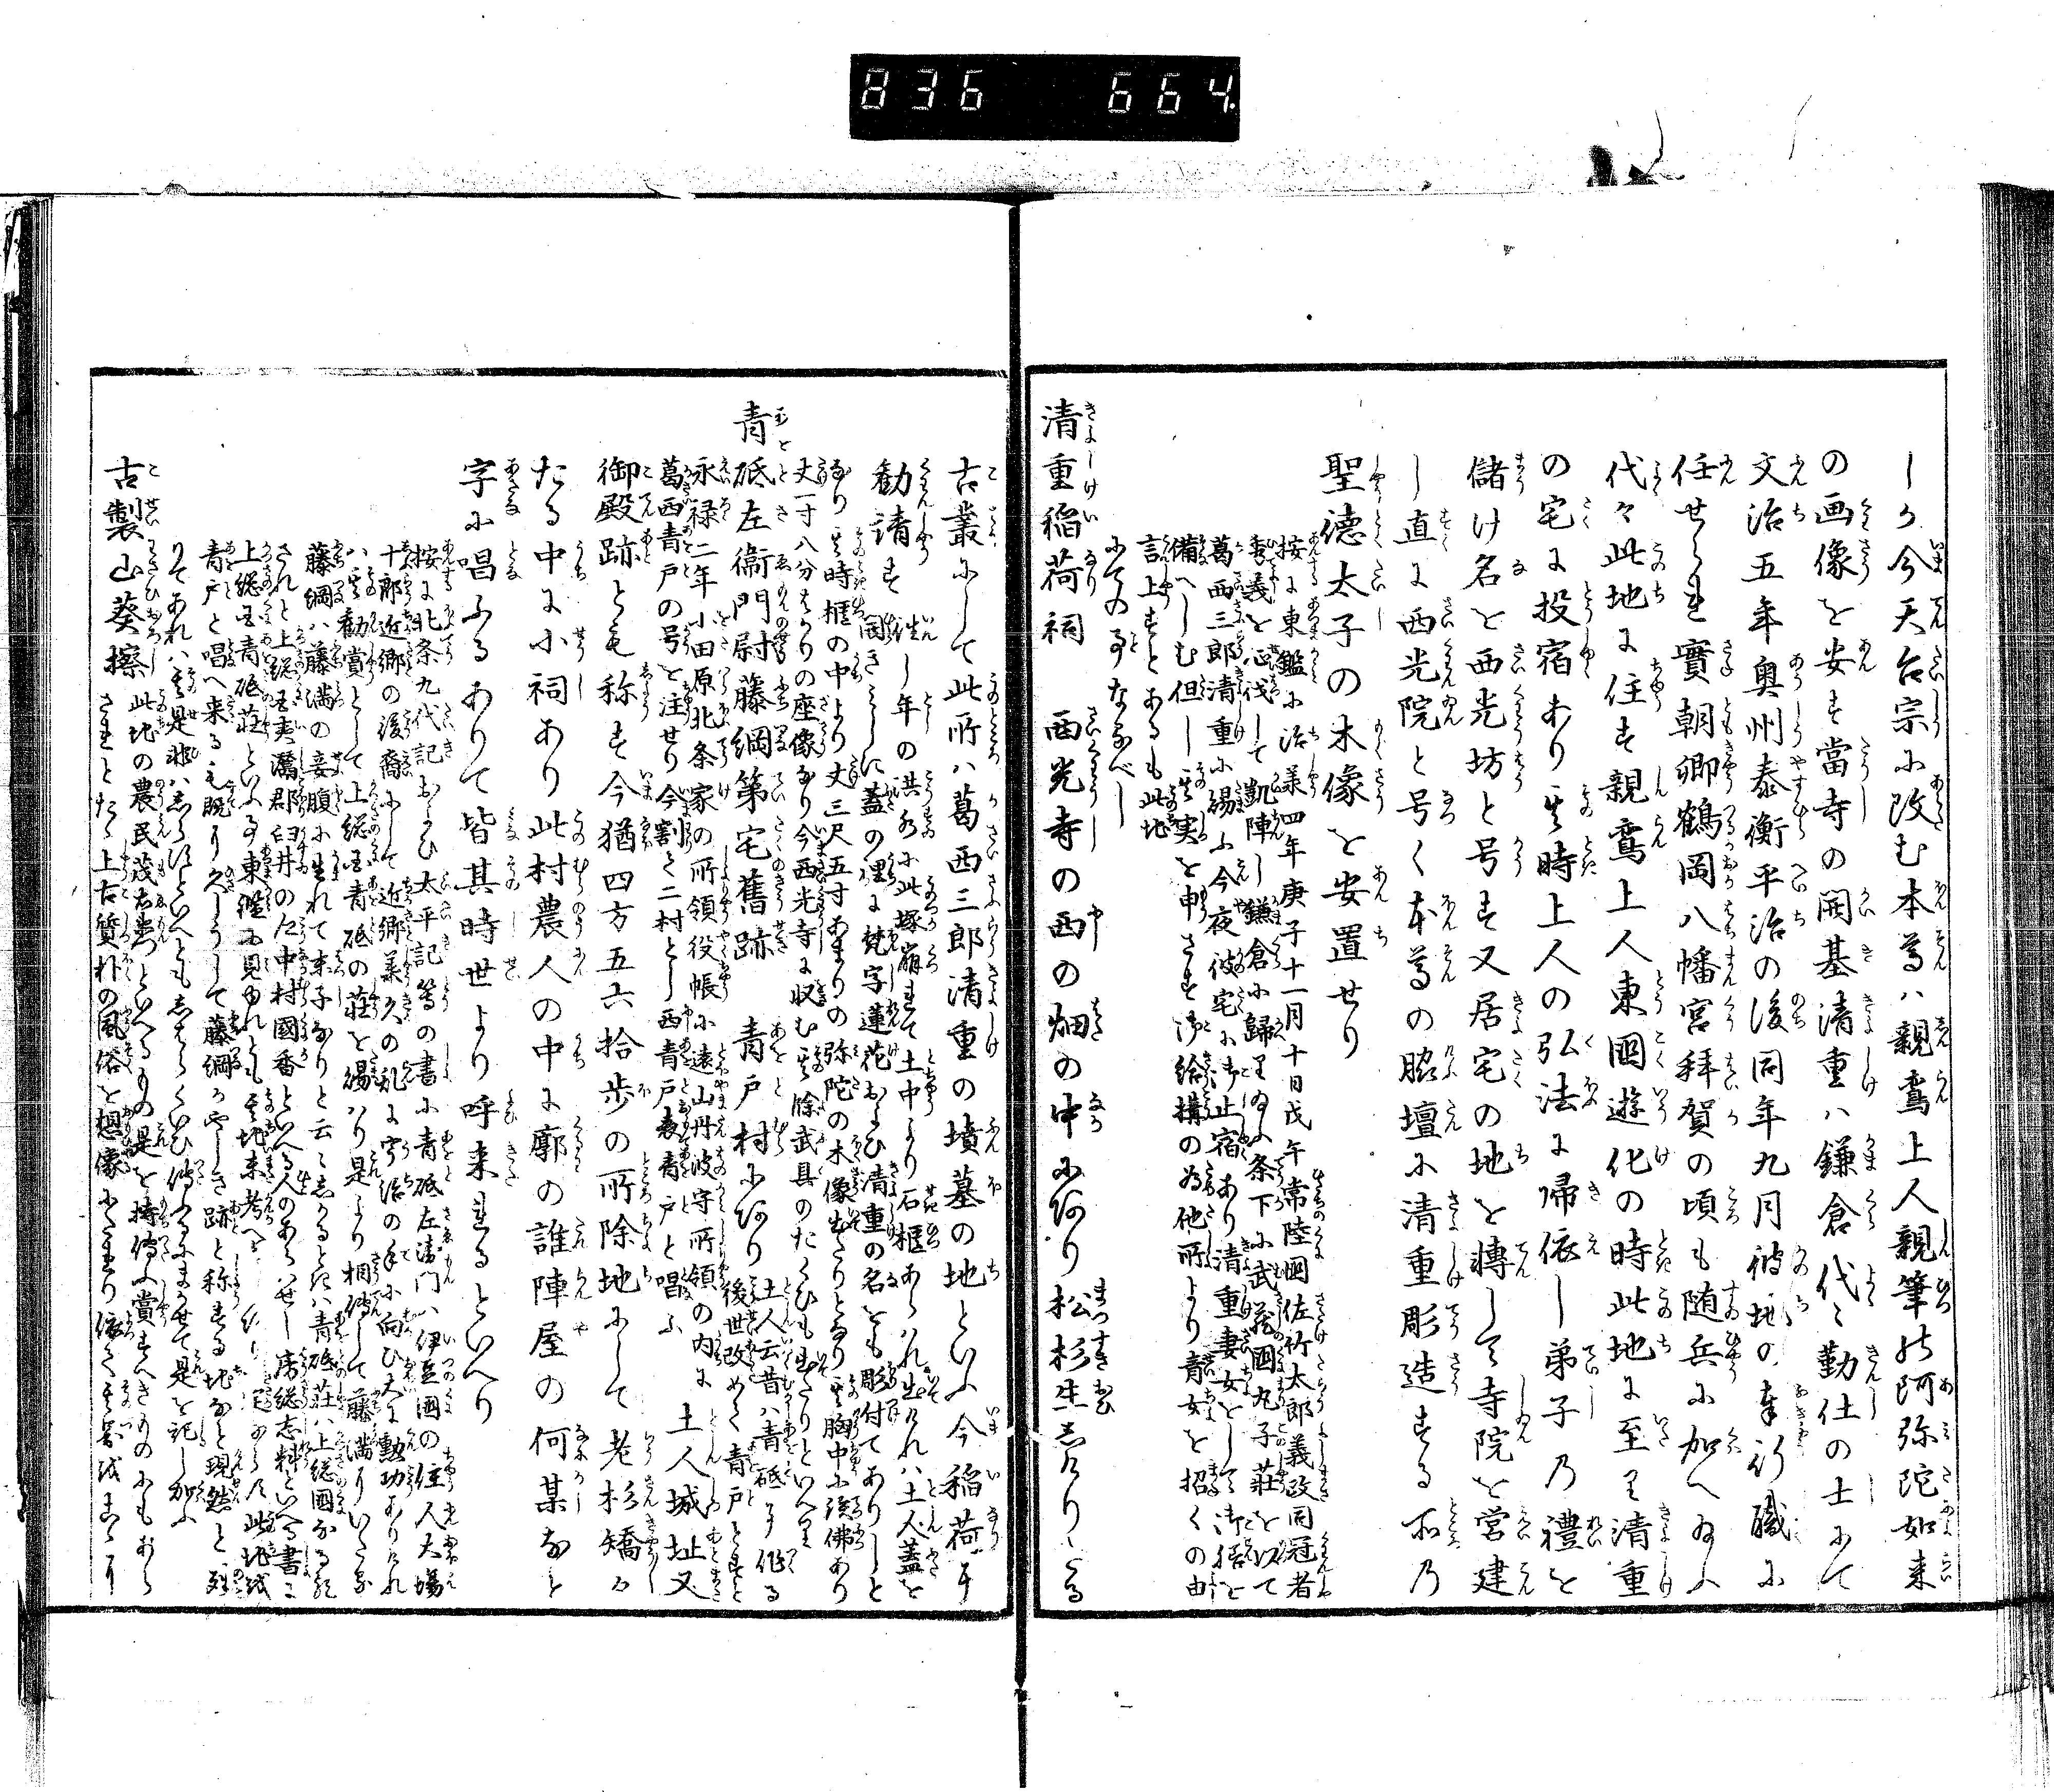 836 664.
しか今天台宗に改む本尊ハ親鸞上人親筆の阿弥陀如来
の画像を安ず當寺の開基清重ハ鎌倉代々勤仕の士にて
文治五年奥州泰衡平治の後同年九月彼地の奉行職に
任せられ實朝卿鶴岡八幡宮拜賀の頃も随兵に加へ給ふ
代々此地に住す親鸞上人東國遊化の時此地に至り清重
の宅に投宿あり其時上人の弘法に帰依し弟子の禮を
儲け名を西光坊と号す又居宅の地を轉して寺院を営建
し直に西光院と号く本尊の脇壇に清重彫造する所の
聖徳太子の木像を安置せり
按に東鑑に治羕四年庚子十一月十日戊午常陸國佐竹太郎義政同冠者
秀義を追伐して凱陣し鎌倉に歸り給ふ条下に武蔵國丸子荘を以て
葛西三郎清重に賜ふ今夜彼宅に御止宿あり清重妻女をして御膳を
備へしむ但し其実を申さず御給構の為他所より青女を招くの由
言上すとあるも此地
にての事なるべし
清重稲荷祠 西光寺の西の畑の中にあり松杉生しけりたる
古叢にして此所ハ葛西三郎清重の墳墓の地といふ今稲荷を
勧請す
往し年の洪水に此塚崩れて土中より石櫃あらハれ出けれハ土人蓋を
開きみしに蓋の裡に梵字蓮花および清重の名とも彫付てありしと
なり其時櫃の中より丈三尺五寸あまりの弥陀の木像出たりとなり其胸中に猿佛あり
丈一寸八分はかりの座像なり今西光寺に収む其餘武具のたくひも出たりといへり
青砥左衞門尉藤綱第宅舊跡 青戸村にあり
土人云昔ハ青砥に作る
後世改めて青戸とすと
永禄二年小田原北条家の所領役帳に遠山丹波守所領の内に
葛西青戸の号を注せり今割て二村とし西青戸裏青戸と唱ふ
土人城址又
御殿跡とも称す今猶四方五六拾歩の所除地にして老杉矯々
たる中に小祠あり此村農人の中に廓の誰陣屋の何某なと
字に唱ふるありて皆其時世より呼来れるといへり
按に北条九代記および太平記等の書に青砥左衞門ハ伊豆國の住人大場
十郎近郷の後裔にして近郷羕久の乱に宇治の手に向ひ大に勲功ありけれ
ハ其勧賞として上総国青砥の荘を賜ハり是より相傳して藤満にいたる
藤綱ハ藤満の妾腹に生れて末子なりと云々しかるときハ青砥荘ハ上総國なる歟
されと上総国夷灊郡臼井の丘中村國香といへる人のあらハせし房総志料といへる書に
上総国青砥荘といふ事東鑑に見ゆれとも其地未考へ
青戸と唱へ来るも既に久しうして藤綱かやしき跡と称する地なと現然と残
りてあれハ其是非ハしらすといへともしはらくいひ傳ふるにまかせて是を記し加ふ
古製山葵擦 此地の農民茂右衞門といへるもの是を持傳ふ賞すへきものにもあら
されとたゝ上古質朴の風俗を想像にたれり